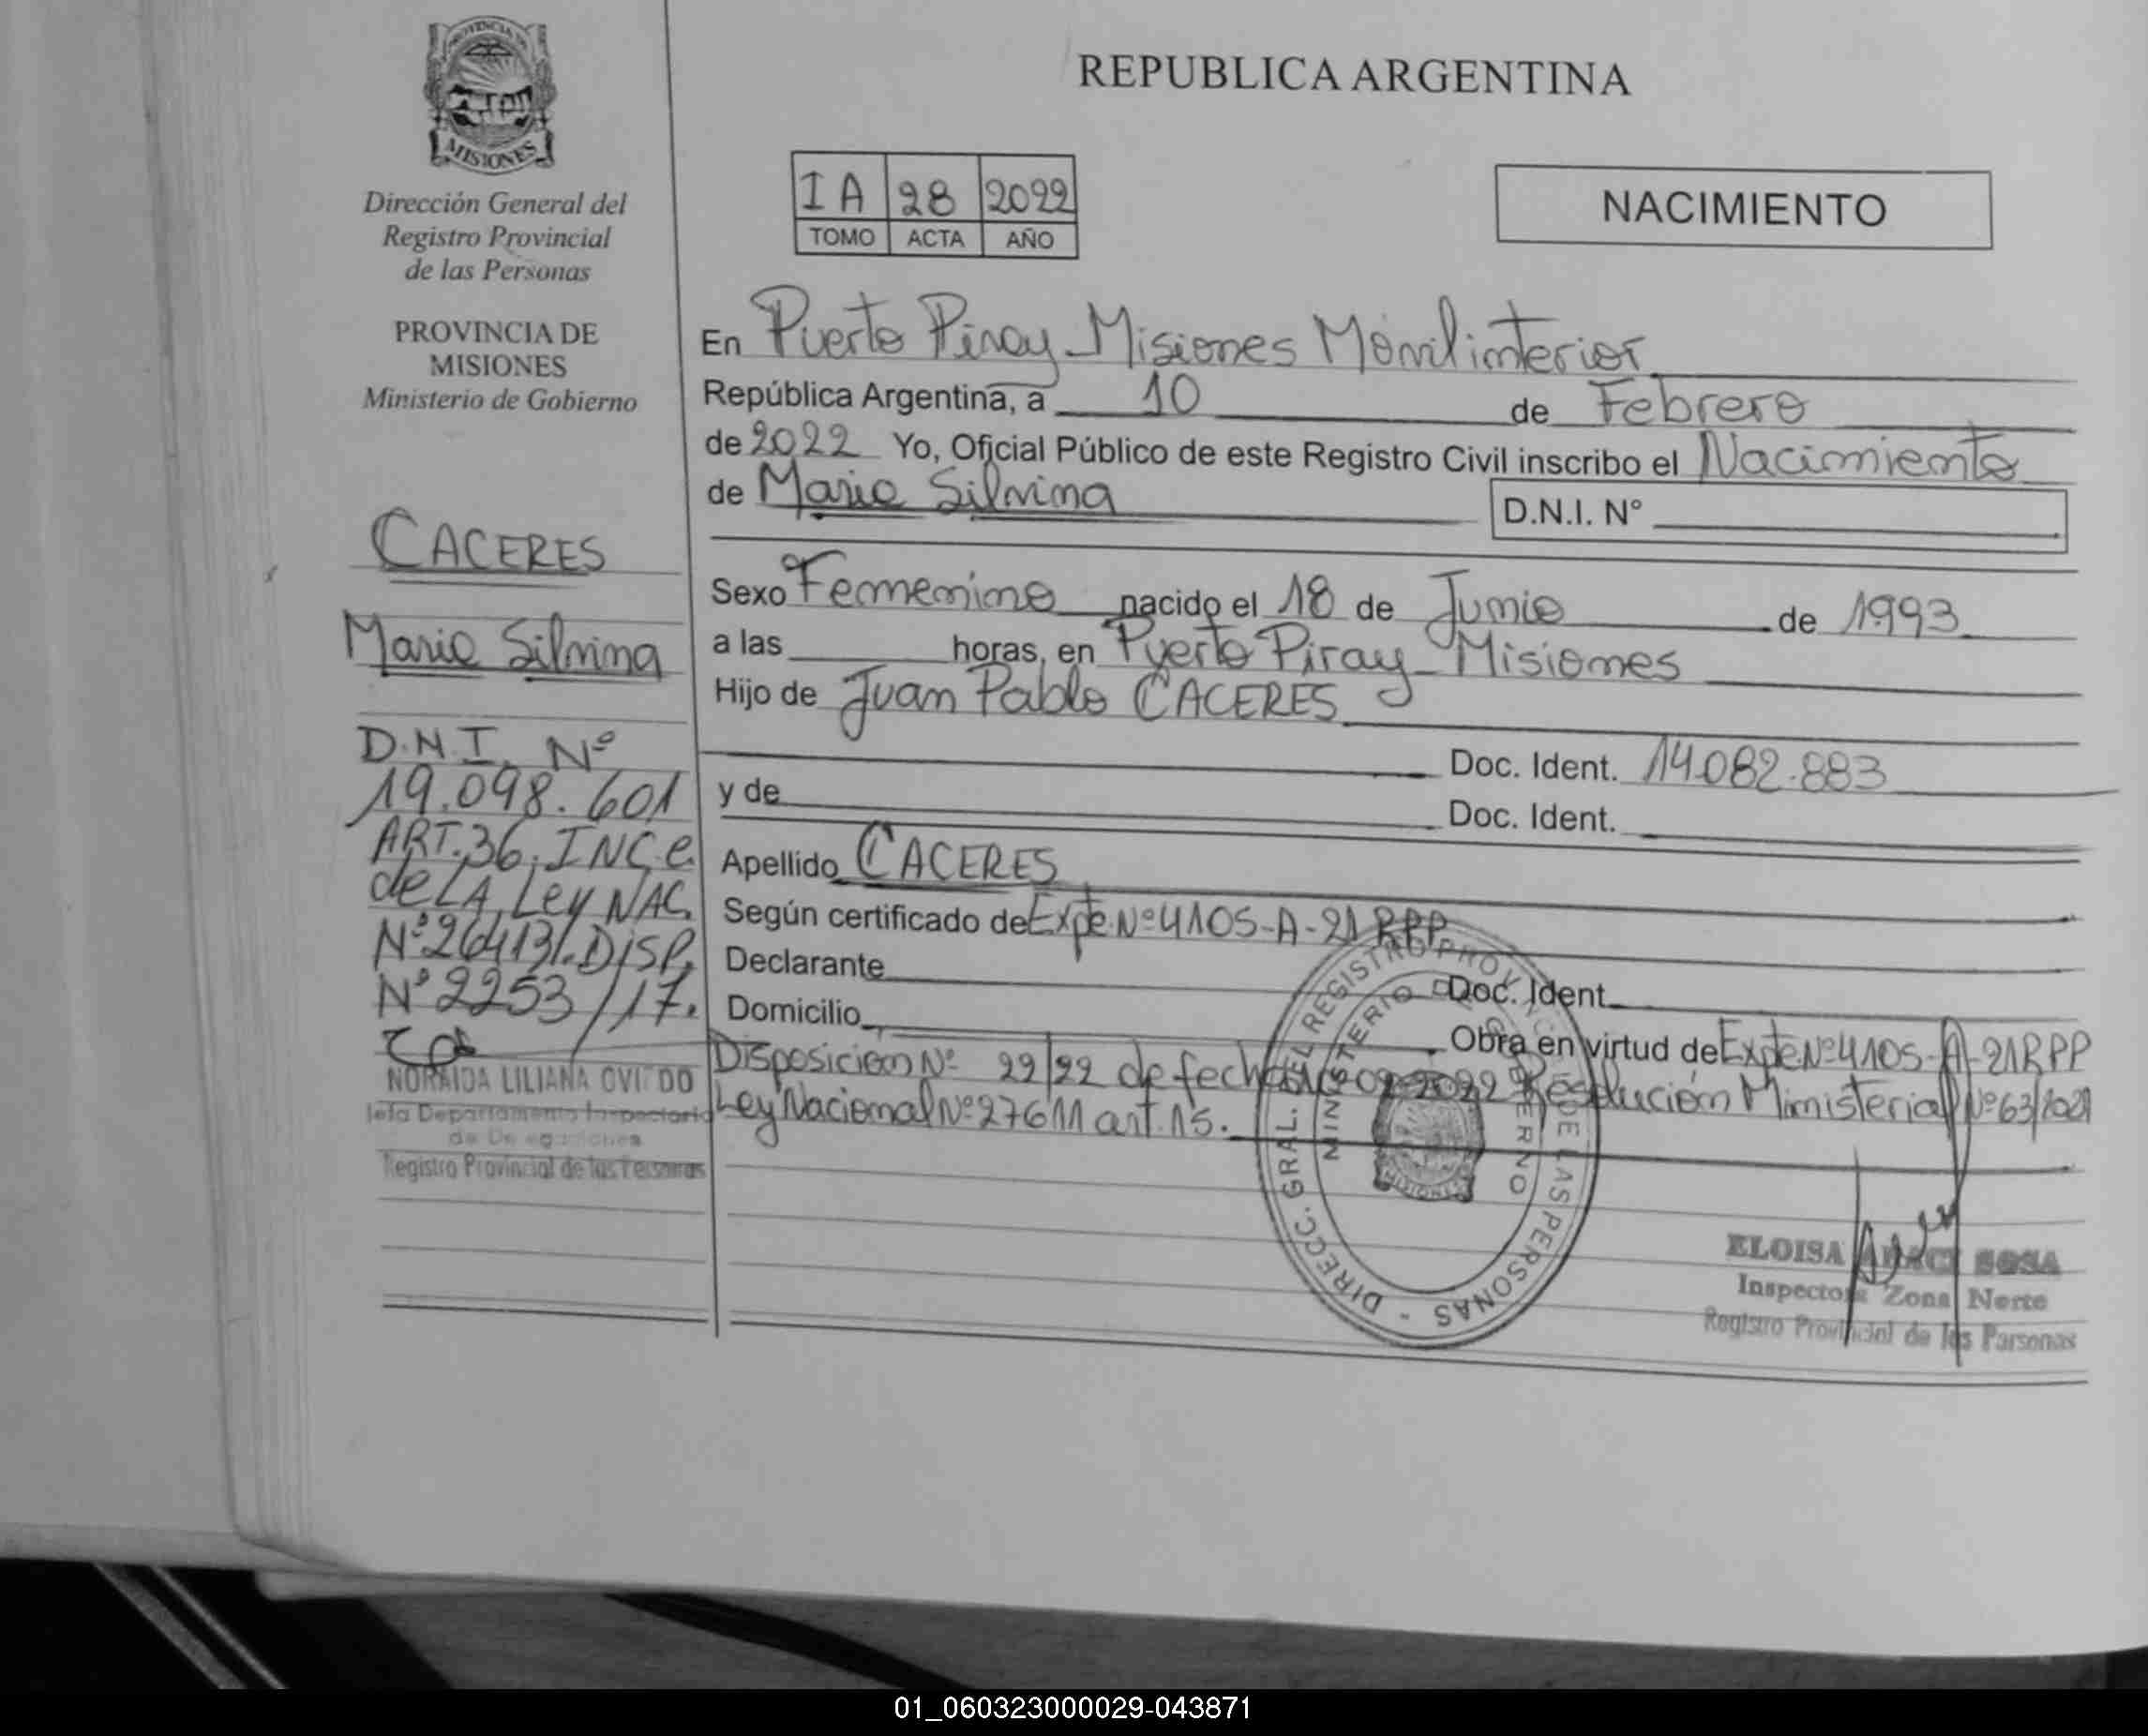 PROVINCIA DE
MISIONES
Dirección General del
Registro Provincial
de las Personas
PROVINCIA DE
MISIONES
Ministerio de Gobierno
CACERES
Maria Silvina
D.N.I. Nº
19.098.601
ART.36, INC.e
de LA Ley NAC.
Nº26413/.DISP.
Nº2253/17.
NORAIDA LILIANA OVIEDO
Jefa Departamento Inspectoria
de Delegaciones
Registro Provincial de las Personas
REPUBLICA ARGENTINA
IA 28 2022
TOMO ACTA AÑO
NACIMIENTO
En Puerto Piray Misiones Móvil interior
República Argentina, a 10 de Febrero
de 2022 Yo, Oficial Público de este Registro Civil inscribo el Nacimiento
de Maria Silvina D.N.I. N°
Sexo Femenino nacido el 18 de Junio de 1993
a las horas, en Puerto Piray Misiones
Hijo de Juan Pablo CACERES
Doc. Ident. 14.082.883
y de Doc. Ident.
Apellido CACERES
Según certificado de Expte Nº 4105-A-21 RPP
Declarante Doc. Ident.
Domicilio
Obra en virtud de Expte Nº 4105-A-21 RPP
Disposicion Nº 22/22 de fecha 02-2022 Resolución Ministerial Nº 63/2021
Ley Nacional Nº 27611 art. 15.
DIRECC. GRAL. DEL REGISTRO PROVINCIAL DE LAS PERSONAS -
MINISTERIO DE GOBIERNO
MISIONES
ELOISA SOSA
Inspectora Zona Norte
Registro Provincial de las Personas
01_060323000029-043871